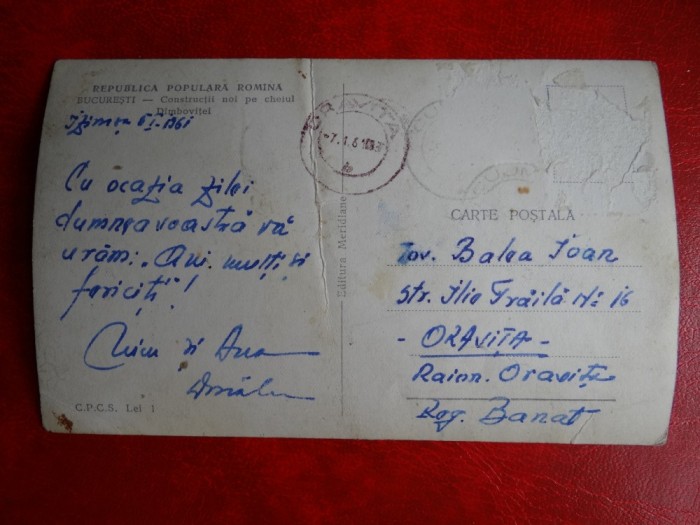 REPUBLICA POPULARA ROMINA
BUCUREȘTI — Construcții noi pe cheiul
Dîmboviței
6/I-1961
Cu ocazia zilei
dumneavoastră vă
urăm: „Ani mulți și
fericiți"!
și Ana
C.P.C.S. Lei 1
Editura Meridiane
ORAVIȚA
-7.1.61
CARTE POȘTALĂ
Tov. Balea Ioan
Str. Ilie Trăilă Nr 16
- ORAVIȚA -
Raion. Oravița
Reg. Banat